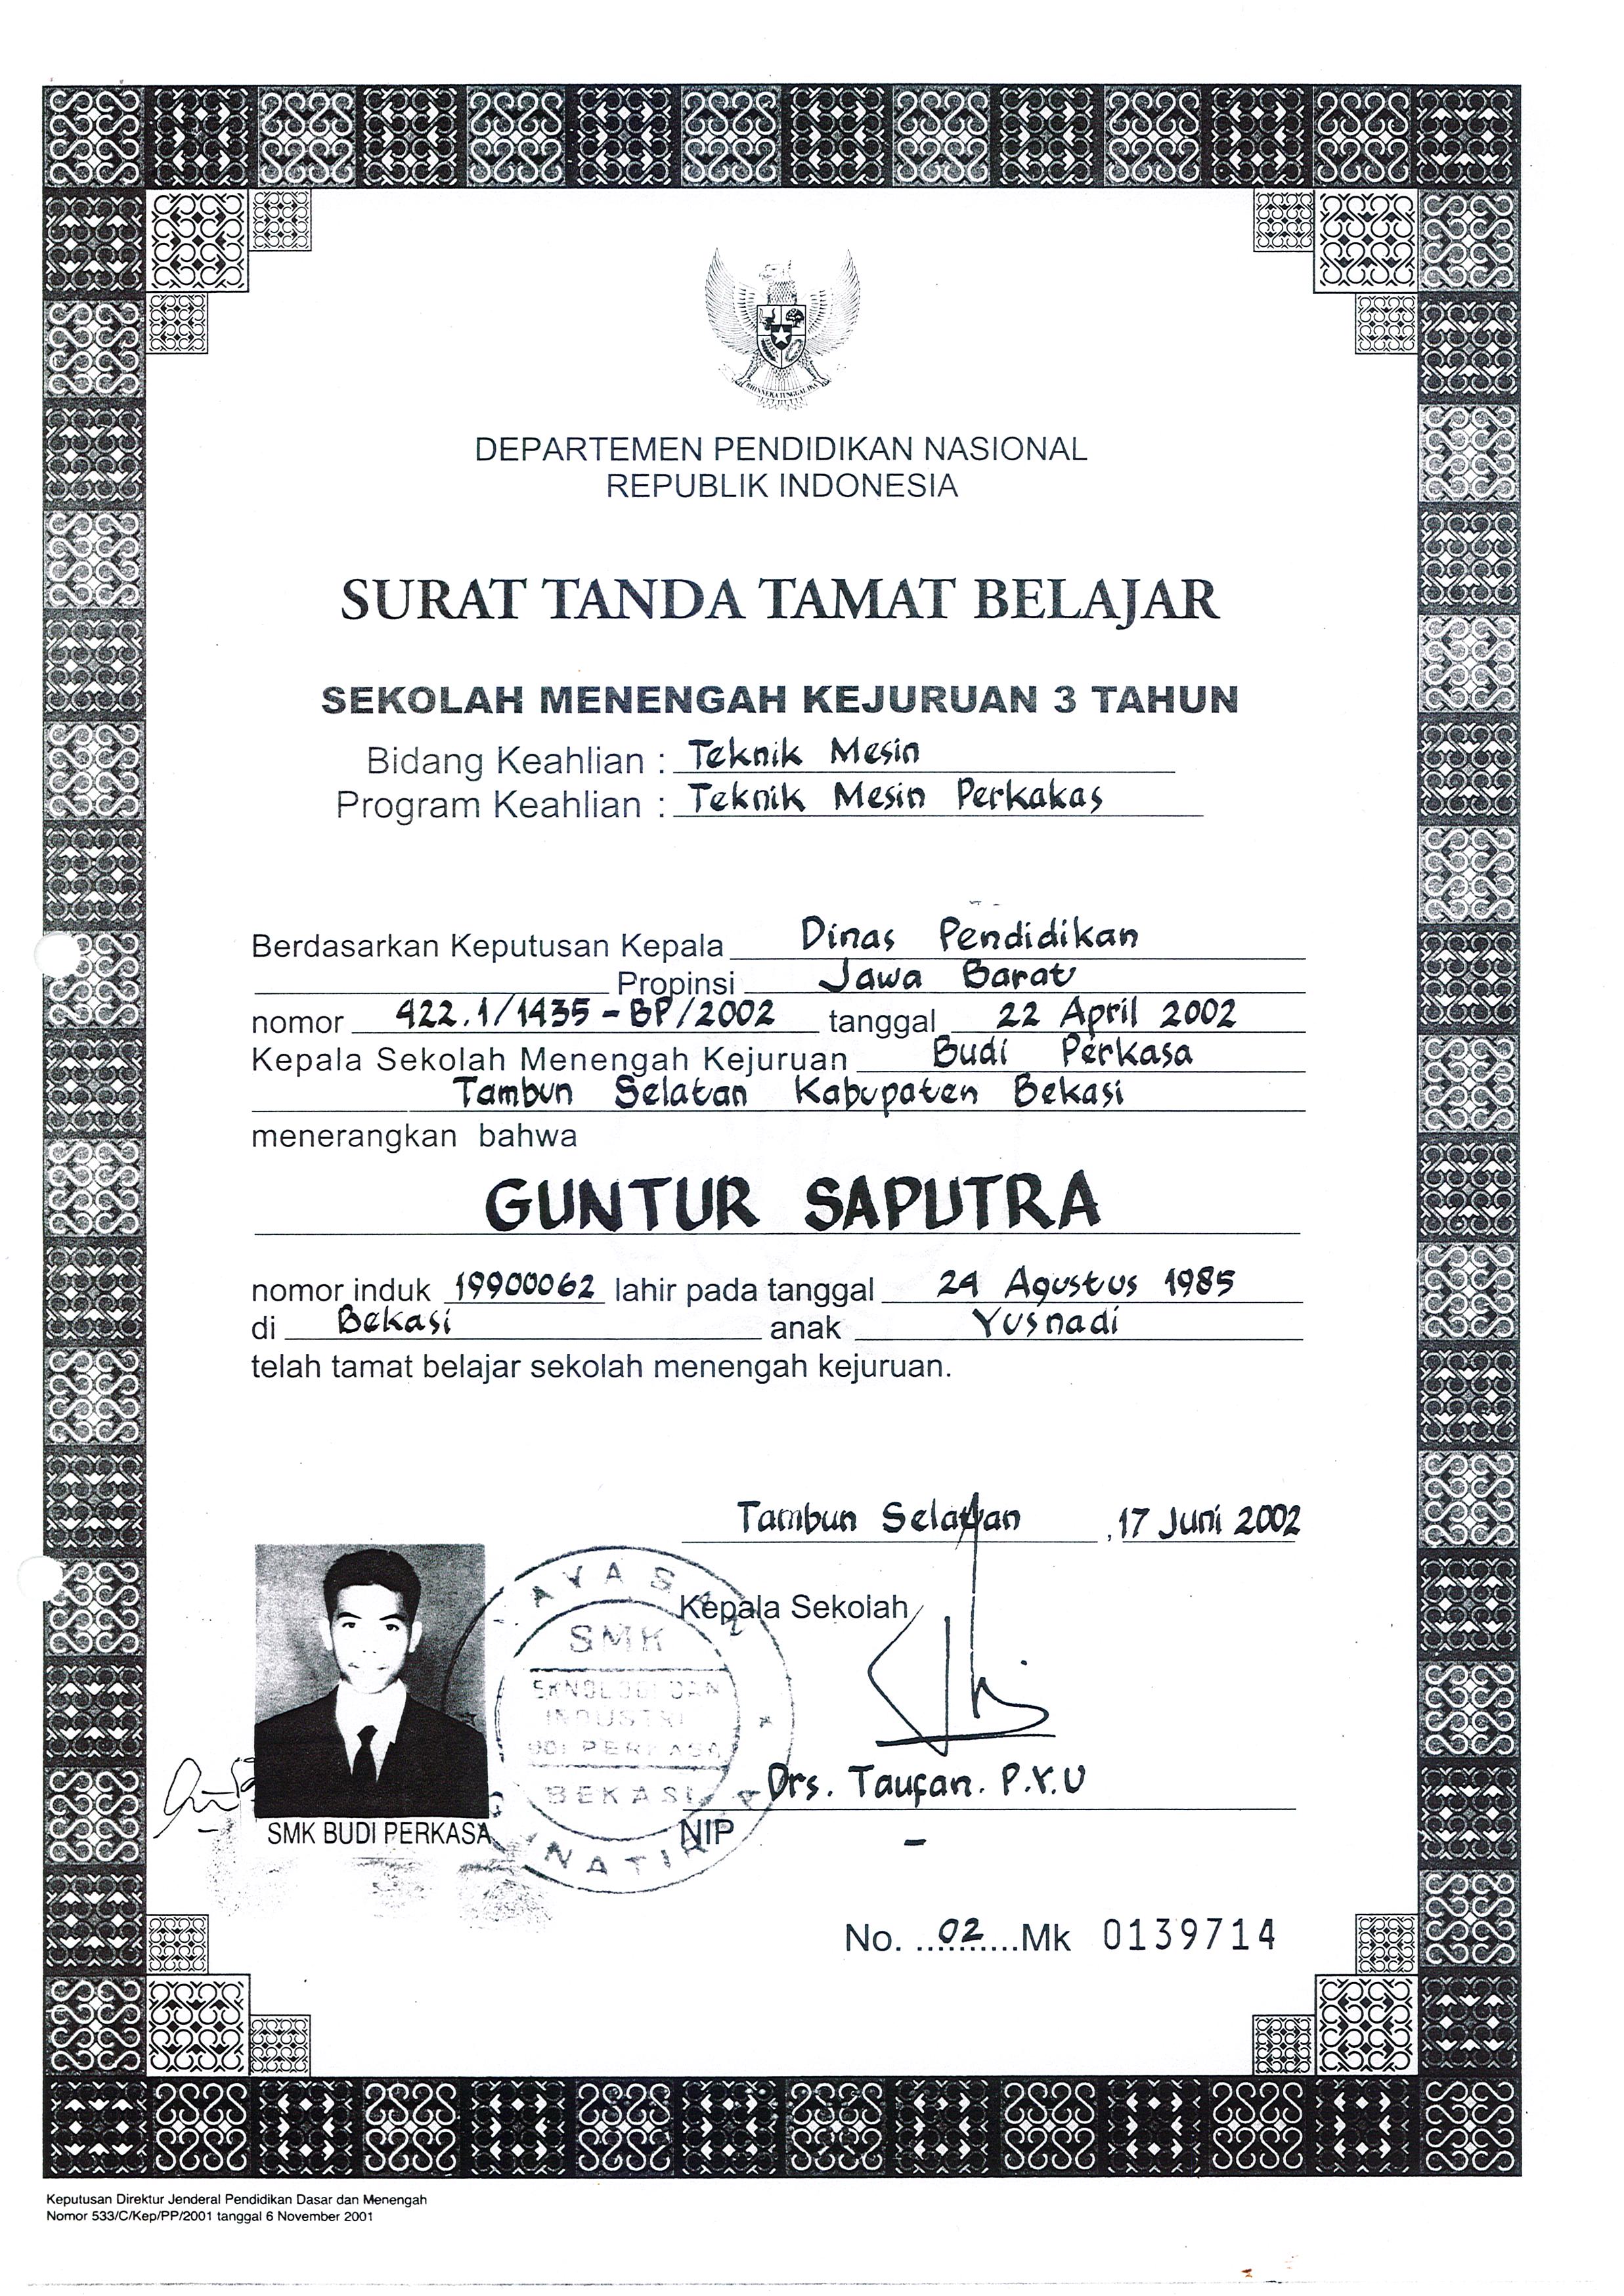 BHINNEKA TUNGGAL IKA
DEPARTEMEN PENDIDIKAN NASIONAL
REPUBLIK INDONESIA
SURAT TANDA TAMAT BELAJAR
SEKOLAH MENENGAH KEJURUAN 3 TAHUN
Bidang Keahlian : Teknik Mesin
Program Keahlian : Teknik Mesin Perkakas
Berdasarkan Keputusan Kepala Dinas Pendidikan
Propinsi Jawa Barat
nomor 422.1/1435-BP/2002 tanggal 22 April 2002
Kepala Sekolah Menengah Kejuruan Budi Perkasa
Tambun Selatan Kabupaten Bekasi
menerangkan bahwa
GUNTUR SAPUTRA
nomor induk 19900062 lahir pada tanggal 24 Agustus 1985
di Bekasi anak Yusnadi
telah tamat belajar sekolah menengah kejuruan.
Tambun Selatan, 17 Juni 2002
Kepala Sekolah
YAYASAN
SMK
INDUSTRI
BEKASI
Drs. Taufan. P.Y.U
SMK BUDI PERKASA
NIP -
No. ..02..........Mk 0139714
Keputusan Direktur Jenderal Pendidikan Dasar dan Menengah
Nomor 533/C/Kep/PP/2001 tanggal 6 November 2001